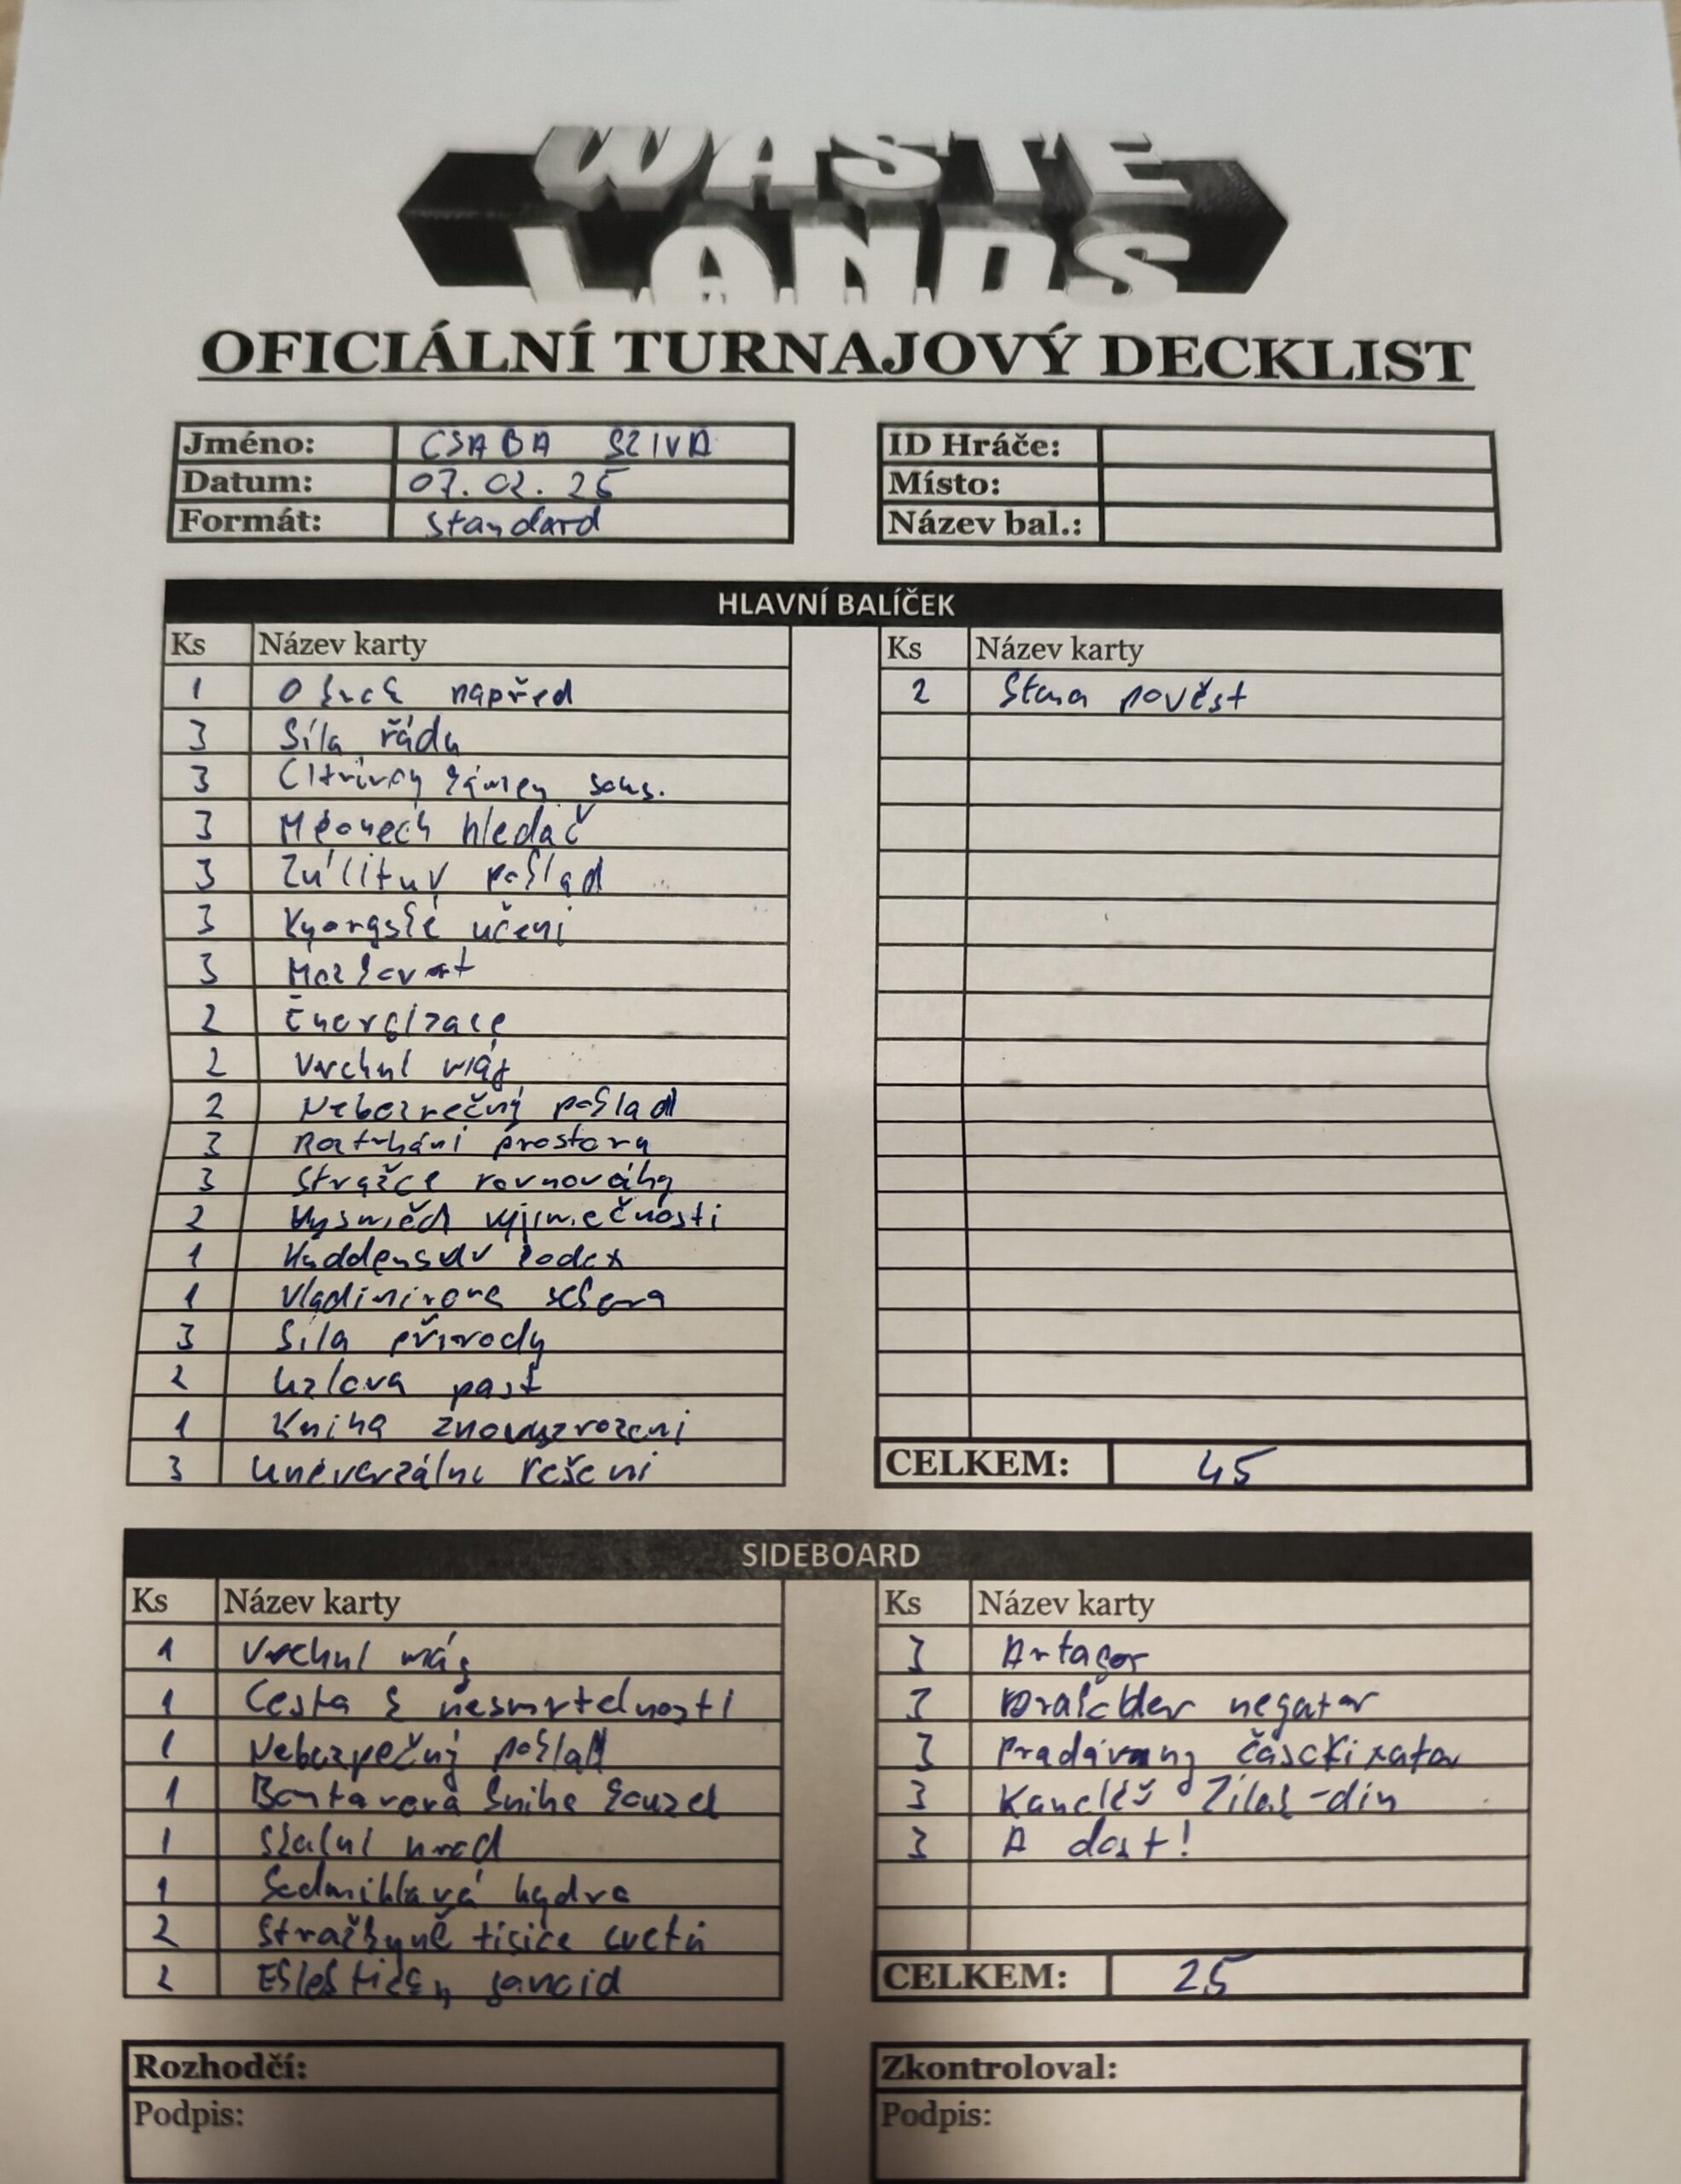 WASTE
LANDS
OFICIÁLNÍ TURNAJOVÝ DECKLIST
Jméno: CSABA SZIVA
Datum: 07. 02. 25
Formát: standard
ID Hráče:
Místo:
Název bal.:
HLAVNÍ BALÍČEK
Ks Název karty
1 O krok napřed
3 Síla řádu
3 sous.
3 hledač
3 poklad
3 Kyorgské učení
3
2 Energizace
2 Vrchní mág
2 Nebezpečný poklad
3 Roztrhání prostoru
3 Strážce rovnováhy
2 Výsměch vyjimečnosti
1 kodex
1 Vladimirova sekera
3 Síla přírody
2 Uzlova past
1 Kniha znovuzrozeni
3 Uneverzálni řešení
Ks Název karty
2 Stara pověst
CELKEM: 45
SIDEBOARD
Ks Název karty
1 Vrchní mág
1 Cesta k nesmrtelnosti
1 Nebezpečný poklad
1 kniha kouzel
1 Skalní hrad
1 Sedmihlavá hydra
2 Stražkyně tisíce světů
2
Ks Název karty
3 Artagor
3 negator
3 Pradávný
3 Kancléř Zilak-din
3 A dost!
CELKEM: 25
Rozhodčí:
Podpis:
Zkontroloval:
Podpis: